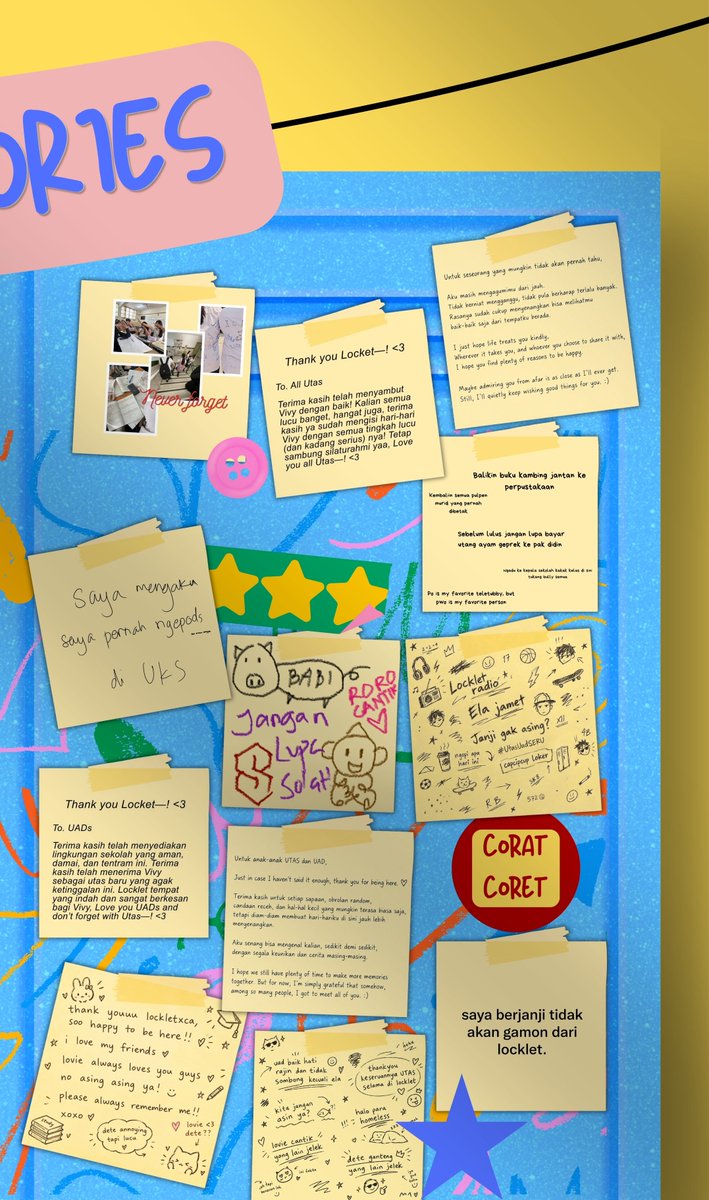 ORIES
Never forget
Thank you Locket—! <3
To. All Utas
Terima kasih telah menyambut
Vivy dengan baik! Kalian semua
lucu banget, hangat juga, terima
kasih ya sudah mengisi hari-hari
Vivy dengan semua tingkah lucu
(dan kadang serius) nya! Tetap
sambung silaturahmi yaa, Love
you all Utas—! <3
Untuk seseorang yang mungkin tidak akan pernah tahu,
Aku masih mengagumimu dari jauh.
Tidak berniat mengganggu, tidak pula berharap terlalu banyak.
Rasanya sudah cukup menyenangkan bisa melihatmu
baik-baik saja dari tempatku berada.
I just hope life treats you kindly,
Wherever it takes you, and whoever you choose to share it with,
I hope you find plenty of reasons to be happy.
Maybe admiring you from afar is as close as I'll ever get.
Still, I'll quietly keep wishing good things for you. :)
Balikin buku kambing jantan ke
perpustakaan
Kembaliin semua pulpen
murid yang pernah
dibetak
Sebelum lulus jangan lupa bayar
utang ayam geprek ke pak didin
Ngadu ke kepala sekolah kakak kelas di sini
tukang bully semua
Po is my favorite teletubby, but
pwo is my favorite person
Saya mengaku
saya pernah ngepods
di UKS
BABI
RORO
CANTIK
Jangan
Lupa
Solat!
Locklet
radio
Ela jamet
Janji gak asing?
#UtasUadSERU
ngopi apa
hari ini
capcipcup loker
R.B
Thank you Locket—! <3
To. UADs
Terima kasih telah menyediakan
lingkungan sekolah yang aman,
damai, dan tentram ini. Terima
kasih telah menerima Vivy
sebagai utas baru yang agak
ketinggalan ini. Locklet tempat
yang indah dan sangat berkesan
bagi Vivy, Love you UADs and
don't forget with Utas—! <3
Untuk anak-anak UTAS dan UAD,
Just in case I haven't said it enough, thank you for being here. ♡
Terima kasih untuk setiap sapaan, obrolan random,
candaan receh, dan hal-hal kecil yang mungkin terasa biasa saja,
tetapi diam-diam membuat hari-hariku di sini jauh lebih
menyenangkan.
Aku senang bisa mengenal kalian, sedikit demi sedikit,
dengan segala keunikan dan cerita masing-masing.
I hope we still have plenty of time to make more memories
together. But for now, I'm simply grateful that somehow,
among so many people, I got to meet all of you. :)
CORAT
CORET
thank youuu lockletxca,
soo happy to be here!!
i love my friends ♡
lovie always loves you guys
no asing asing ya!
please always remember me!!
xoxo ♡
study
dete annoying
tapi lucu
lovie <3
dete??
uad baik hati
rajin dan tidak
sombong kecuali ela
thankyou
keseruannya UTAS
selama di locklet
haha
kita jangan
asin ya?
halo para
homeless
lovie cantik
yang lain jelek
dete ganteng
yang lain jelek
saya berjanji tidak
akan gamon dari
locklet.